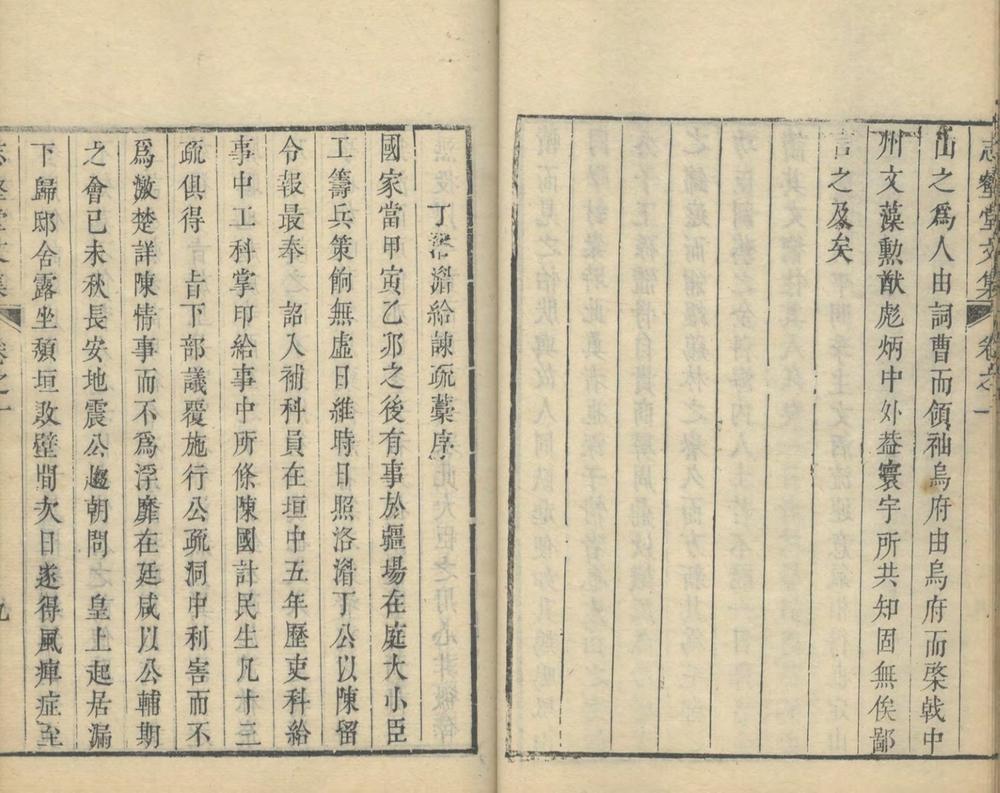 志壑堂文集 卷之一
山之爲人由詞曹而領袖烏府由烏府而棨戟中
州文藻勳猷彪炳中外葢寰宇所共知固無俟鄙
言之及矣
丁洛湄給諫疏藁序
國家當甲寅乙夘之後有事於疆場在庭大小臣
工籌兵策餉無虛日維時日照洛湄丁公以陳留
令報最奉 詔入補科員在垣中五年歷吏科給
事中工科掌印給事中所條陳國計民生凡十三
疏俱得 旨下部議覆施行公疏洞中利害而不
爲激楚詳陳情事而不爲浮靡在廷咸以公輔期
之會已未秋長安地震公趨朝問 皇上起居漏
下歸邸舍露坐頽垣敗壁間次日遂得風痺症至
志壑堂文集 卷之一 九